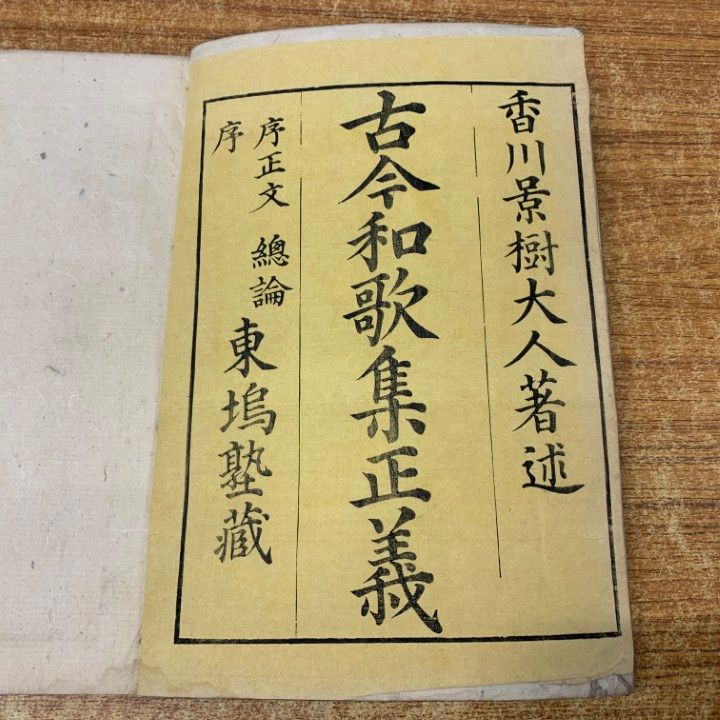 香川景樹大人著述
古今和歌集正義
序正文 總論
序
東塢塾藏